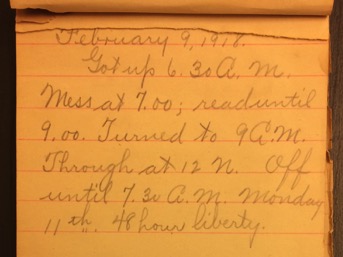 February 9, 1918.
Got up 6.30 A.M.
Mess at 7.00; read until
9.00. Turned to 9 A.M.
Through at 12 N. Off
until 7.30 A.M. Monday
11th. 48 hour liberty.